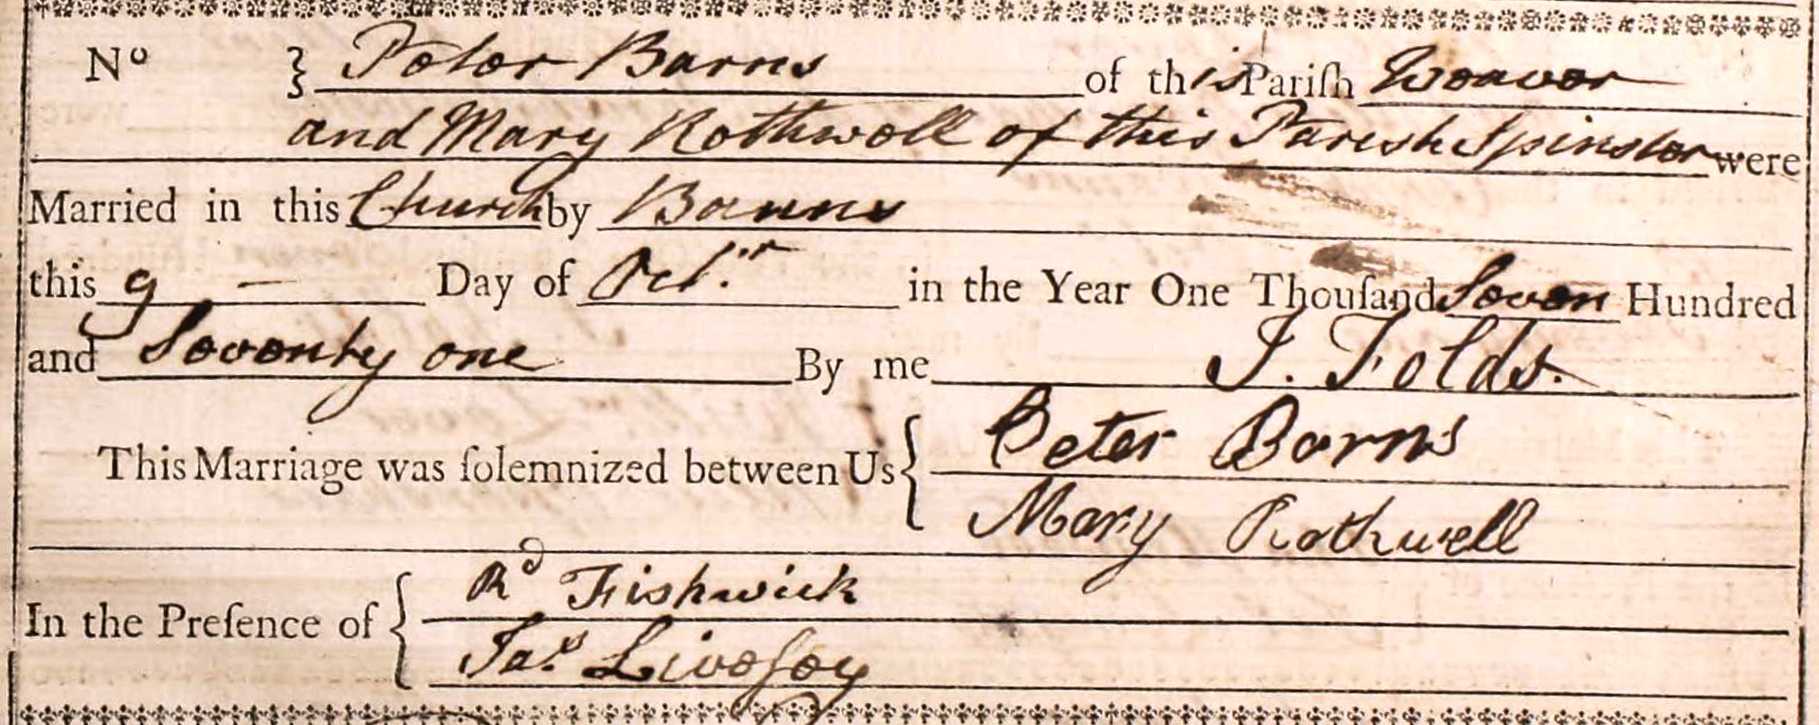 No } Peter Barns of this Pariſh Weaver
and Mary Rothwell of this Parish Spinster were
Married in this Church by Banns
this 9 — Day of Oct.r in the Year One Thouſand Seven Hundred
and Seventy one By me J. Folds.
This Marriage was ſolemnized between Us { Peter Barns
Mary Rothwell
In the Preſence of { Rd Fishwick
Jas Liveſey